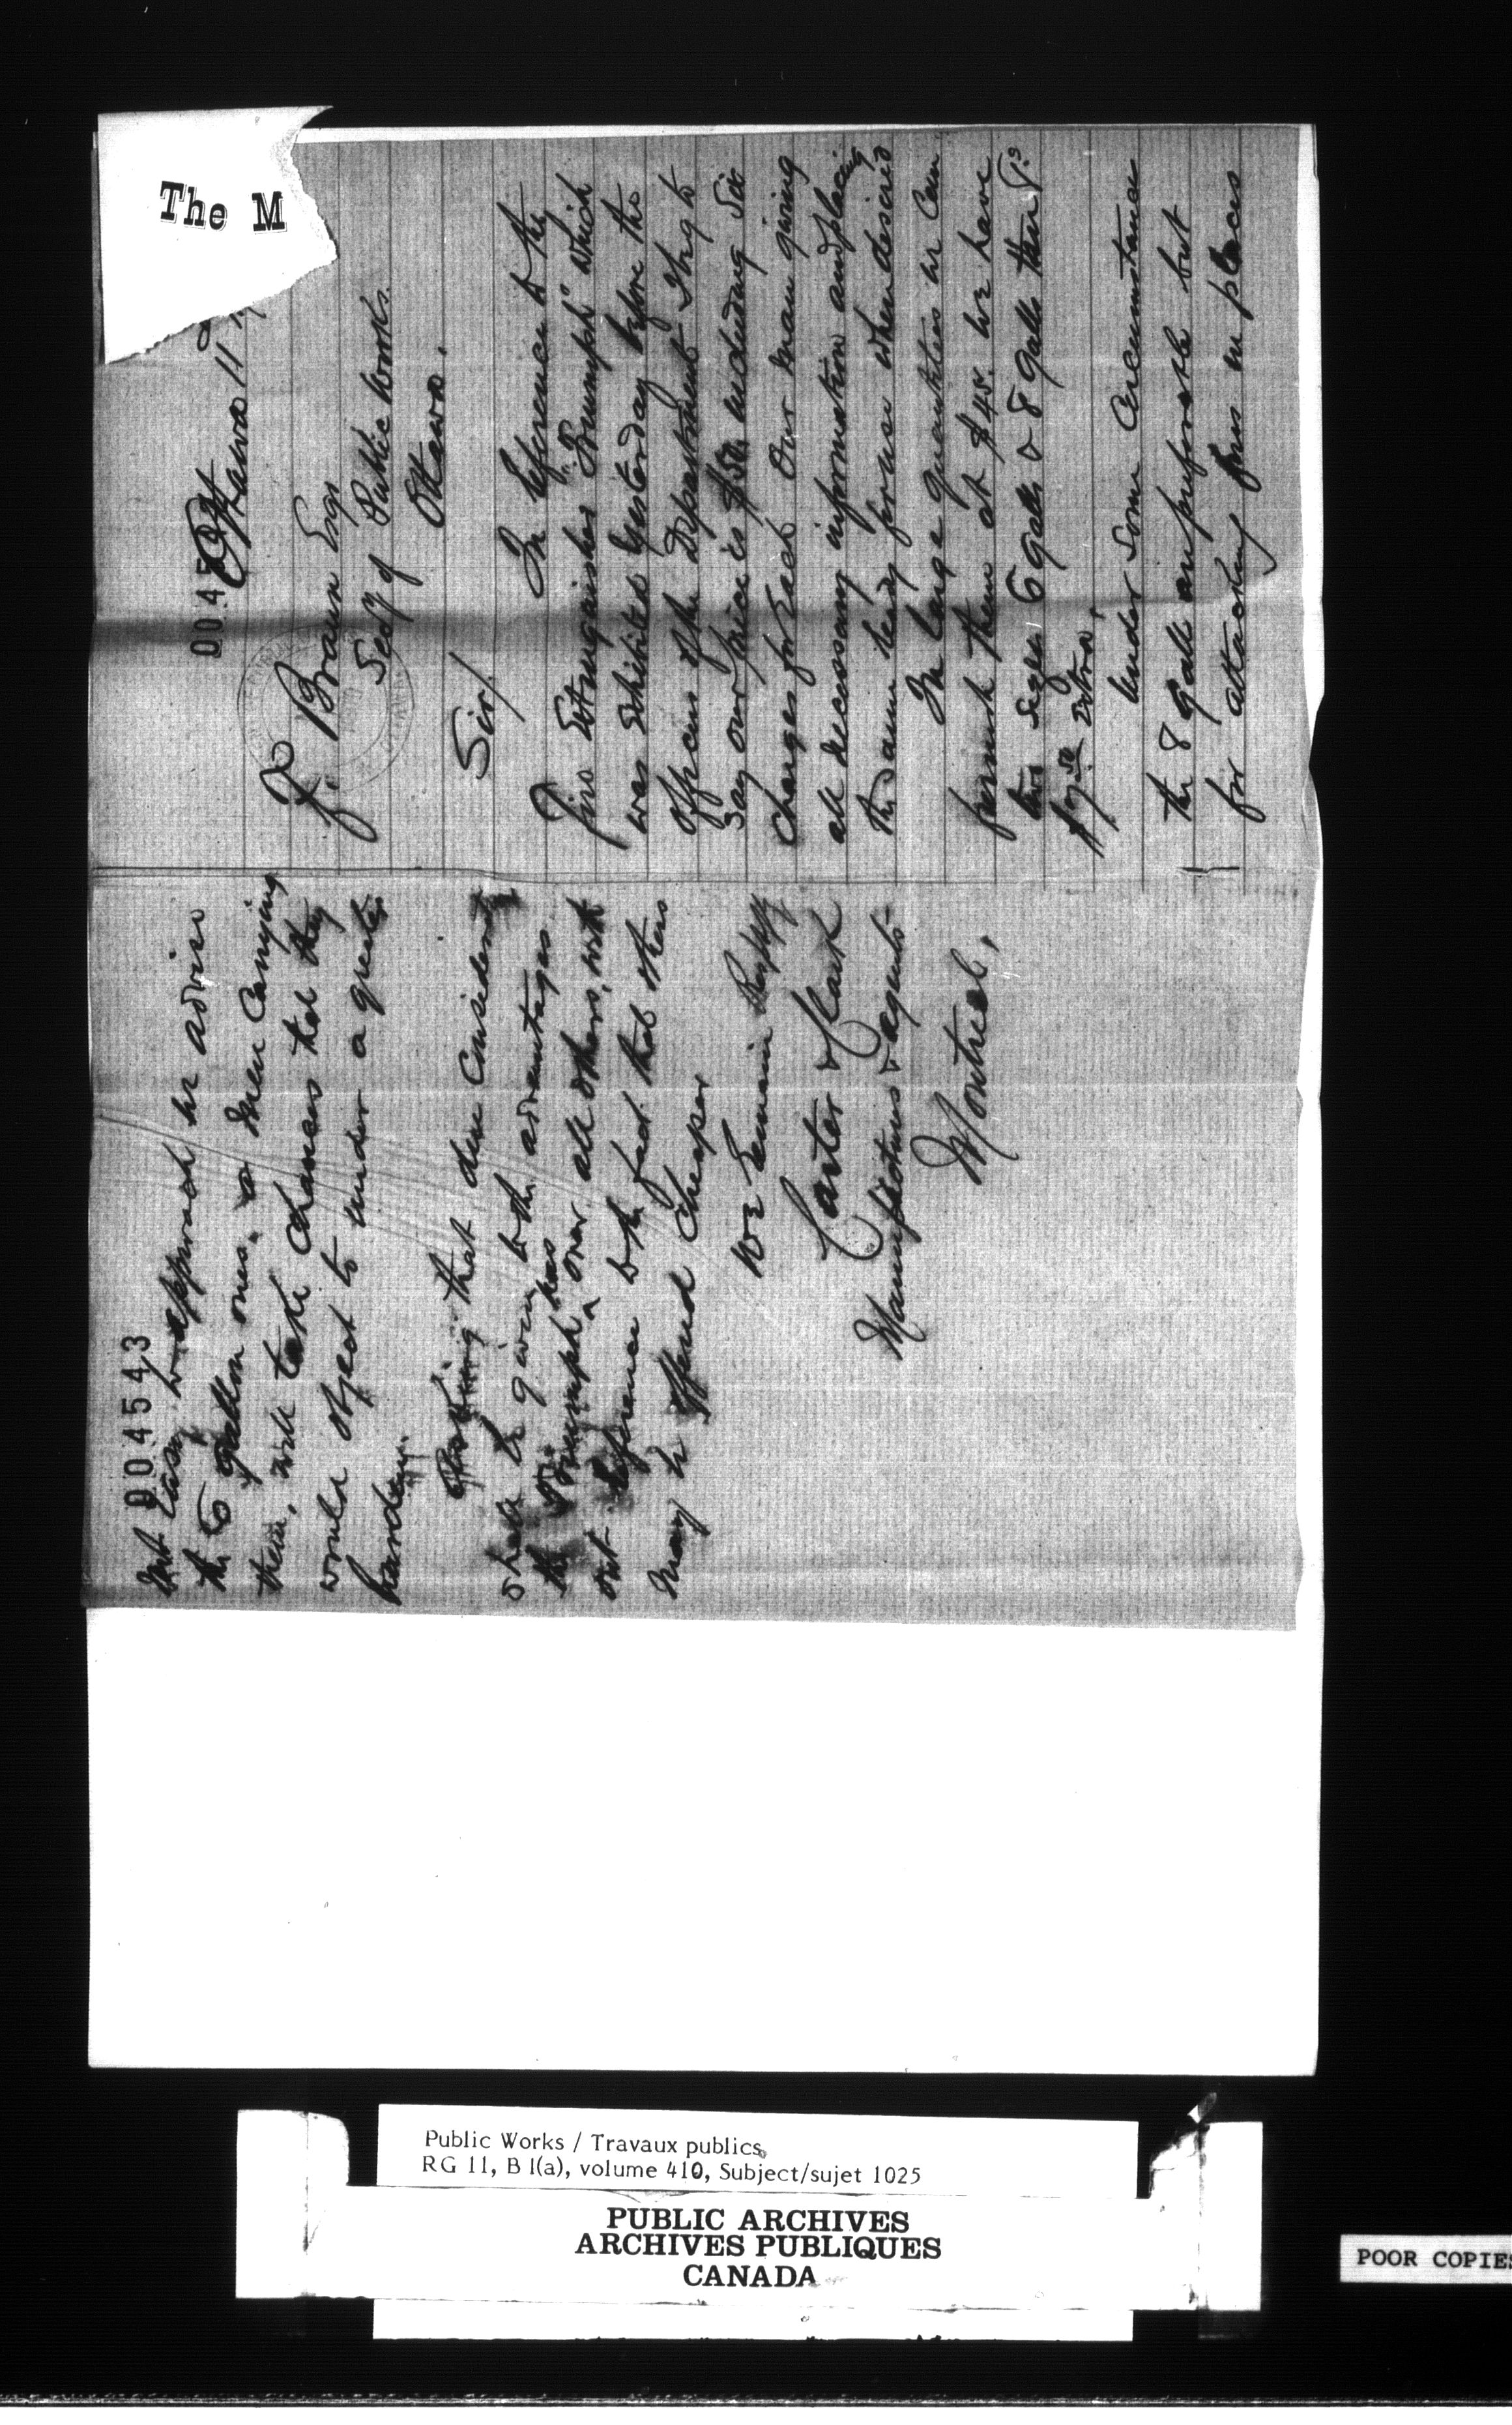 The M
0045
Ottawa 11
F. Braun Esqr
Secy of Public Works.
Ottawa.
Sir/
In reference to the
Fire Extinguisher "Triumph" which
was Exhibited Yesterday before the
officers of the Department I beg to
say our price is $50. including Six
Charges for Each Our man giving
all necessary information and placing
the same ready for use when desired
In large quantities we can
furnish them at $45. we have
two sizes 6 galls & 8 galls the
extra.
Under some Circumstances
the 8 gall are preferable but
for attacking fires in places
004543
not easy to approach we advise
the 6 gallon ones, as men carrying
them, will take chances that they
would object to under a greater
burden.
that due Consideration
shall be given to the advantages
the "Triumph" has over all others, with
out reference to the fact that others
may be offered cheaper
We remain
Carter &
Manufacturers & agents
Montreal,
Public Works / Travaux publics
RG 11, B 1(a), volume 410, Subject/sujet 1025
PUBLIC ARCHIVES
ARCHIVES PUBLIQUES
CANADA
POOR COPIES